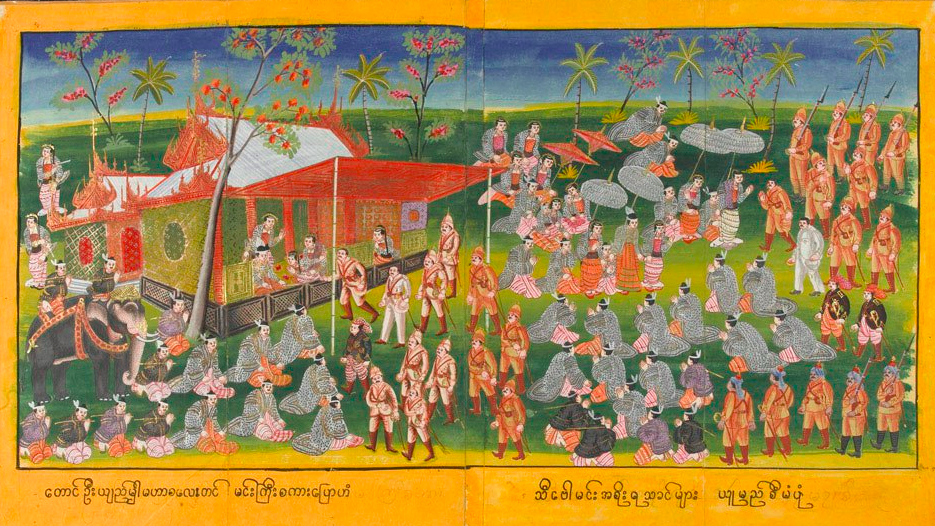 တောင်ဦးယျည်မျှါမဟာစလေးတင် မင်းကြီးစကားပြောဟံ
သီပေါမင်းအစိုးရသခင်များ ယူမည်စီမံပုံ